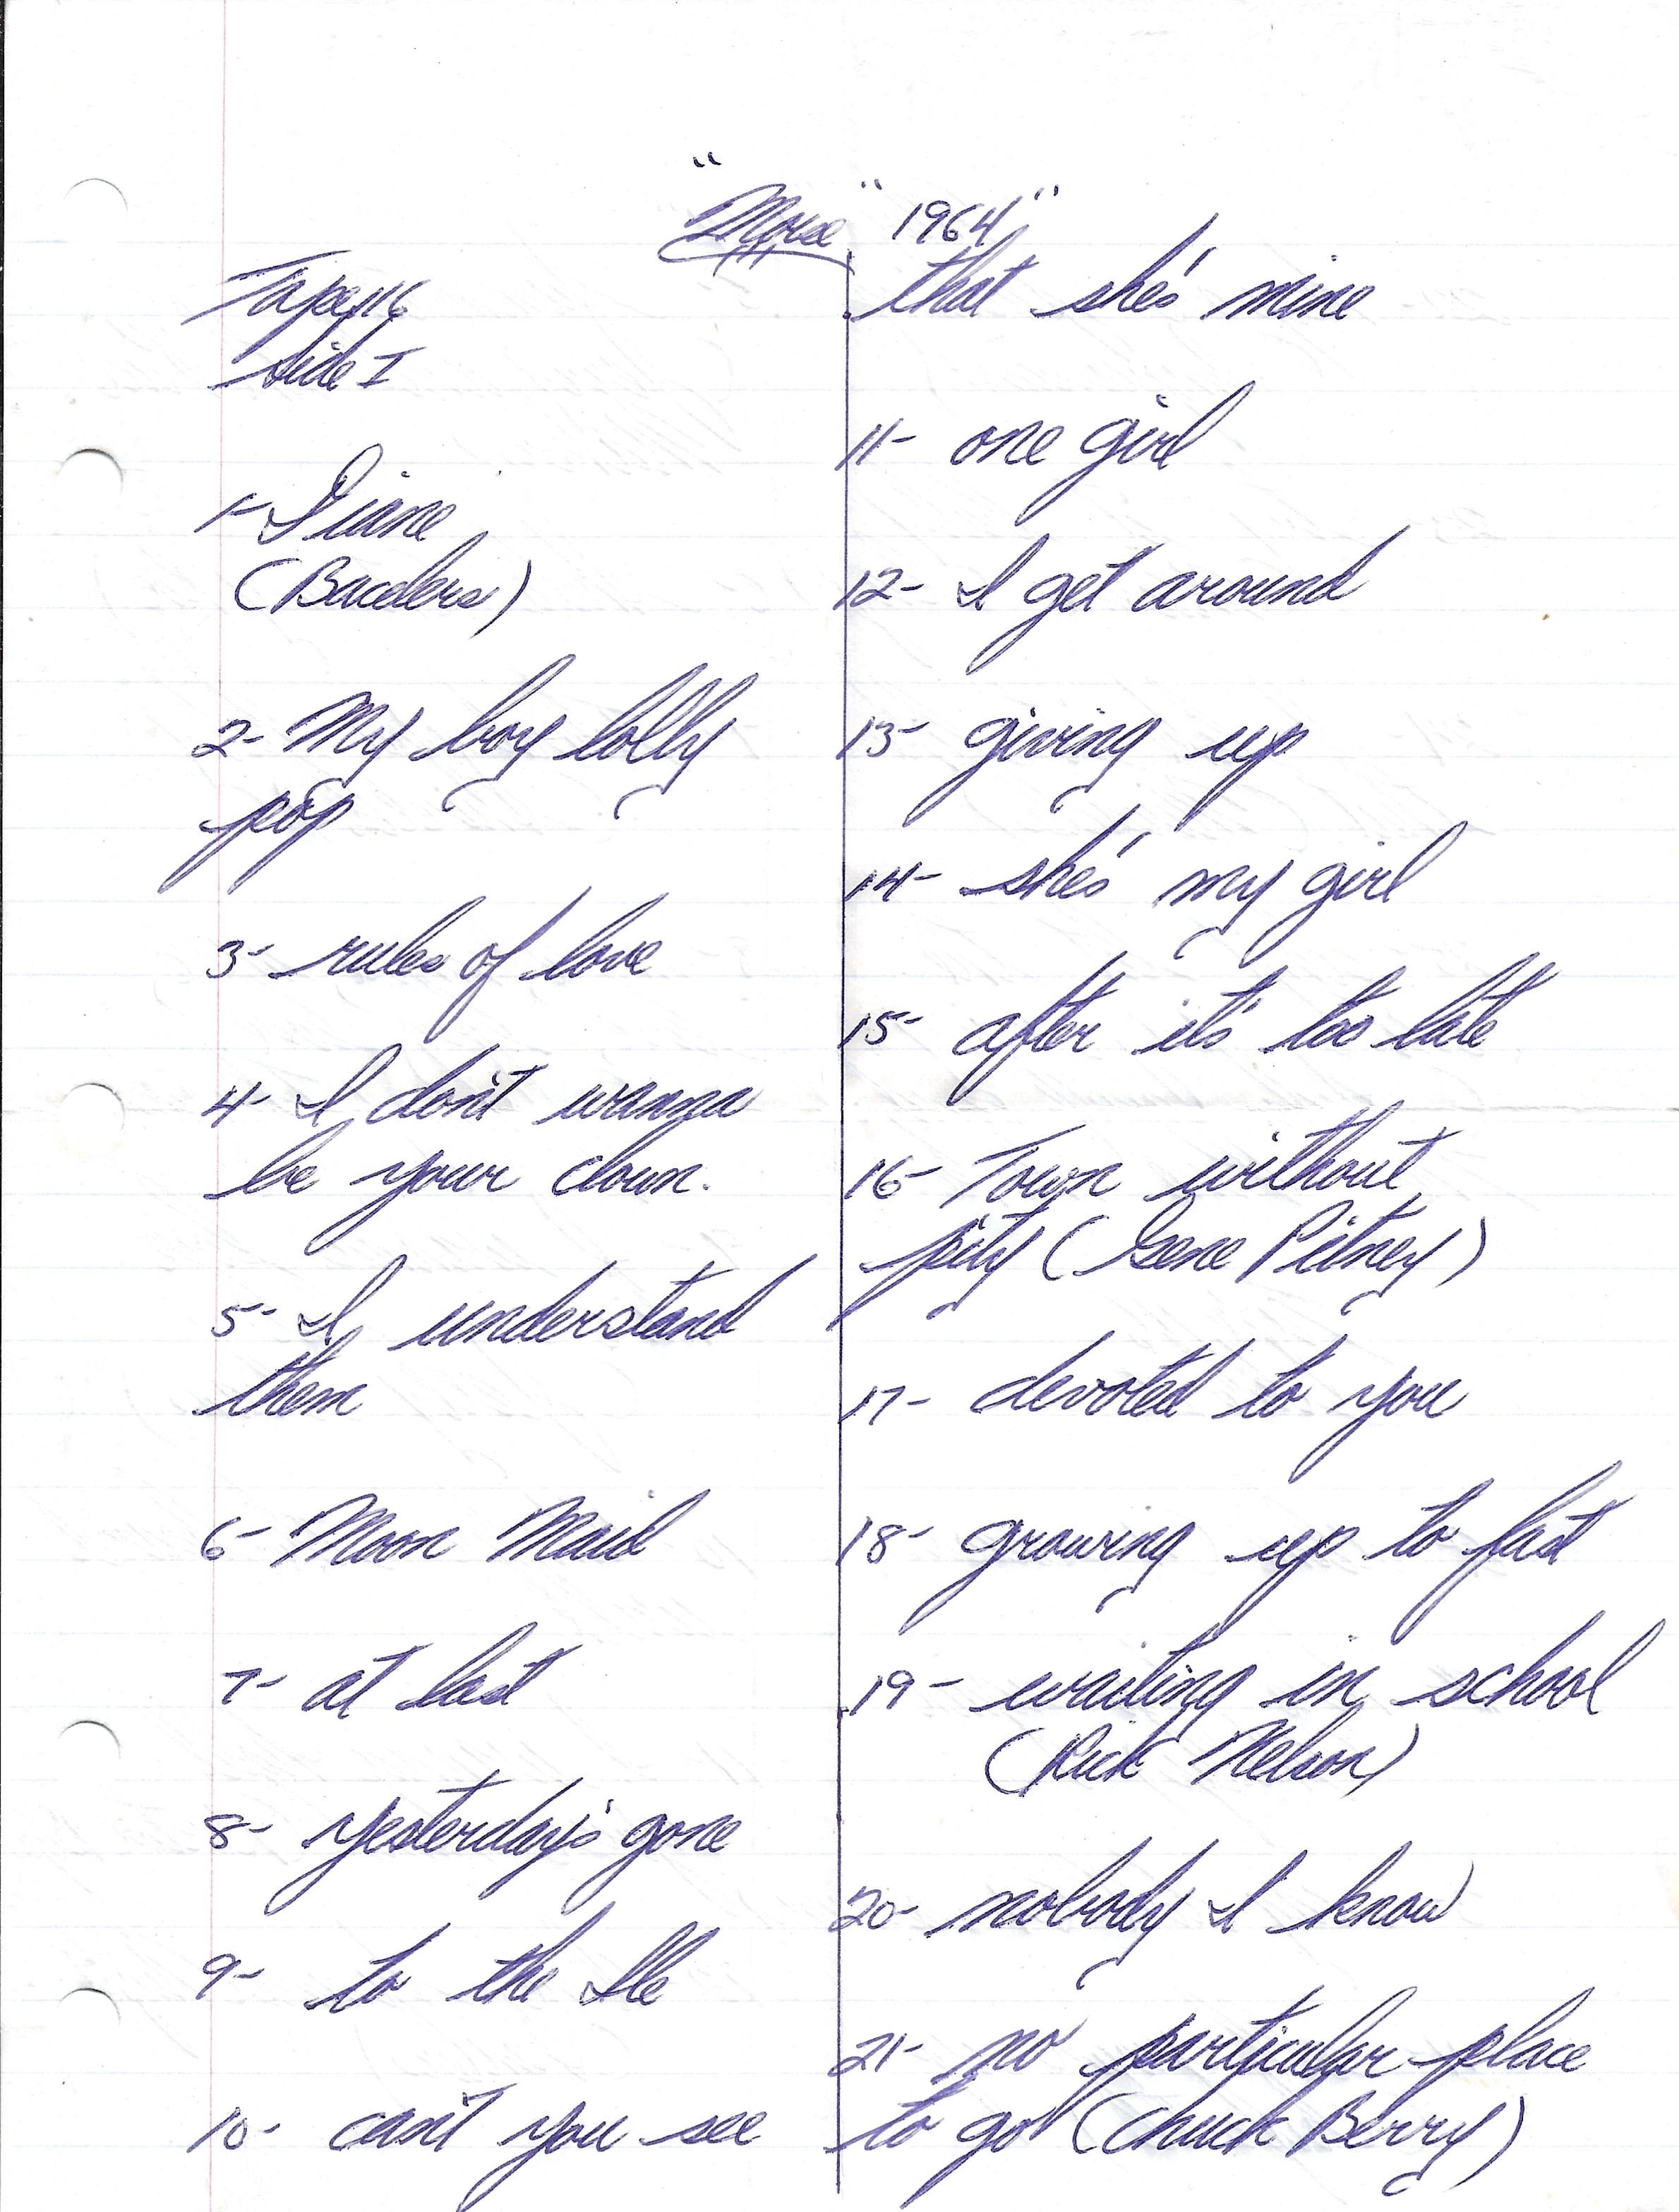 "More" "1964"
Tape 116
side I
1- Diane
(Bacelers)
2- My boy lolly
pop
3- rules of love
4- I don't wanna
be your clown.
5- I understand
them
6- Moon Maid
7- at last
8- yesterday's gone
9- to the
10- can't you see
that she's mine
11- one girl
12- I get around
13- giving up
14- she's my girl
15- after it's too late
16- Town without
pity (Gene Pitney)
17- devoted to you
18- growing up to fast
19- waiting in school
(Rick Nelson)
20- nobody I know
21- no particular place
to go (Chuck Berry)